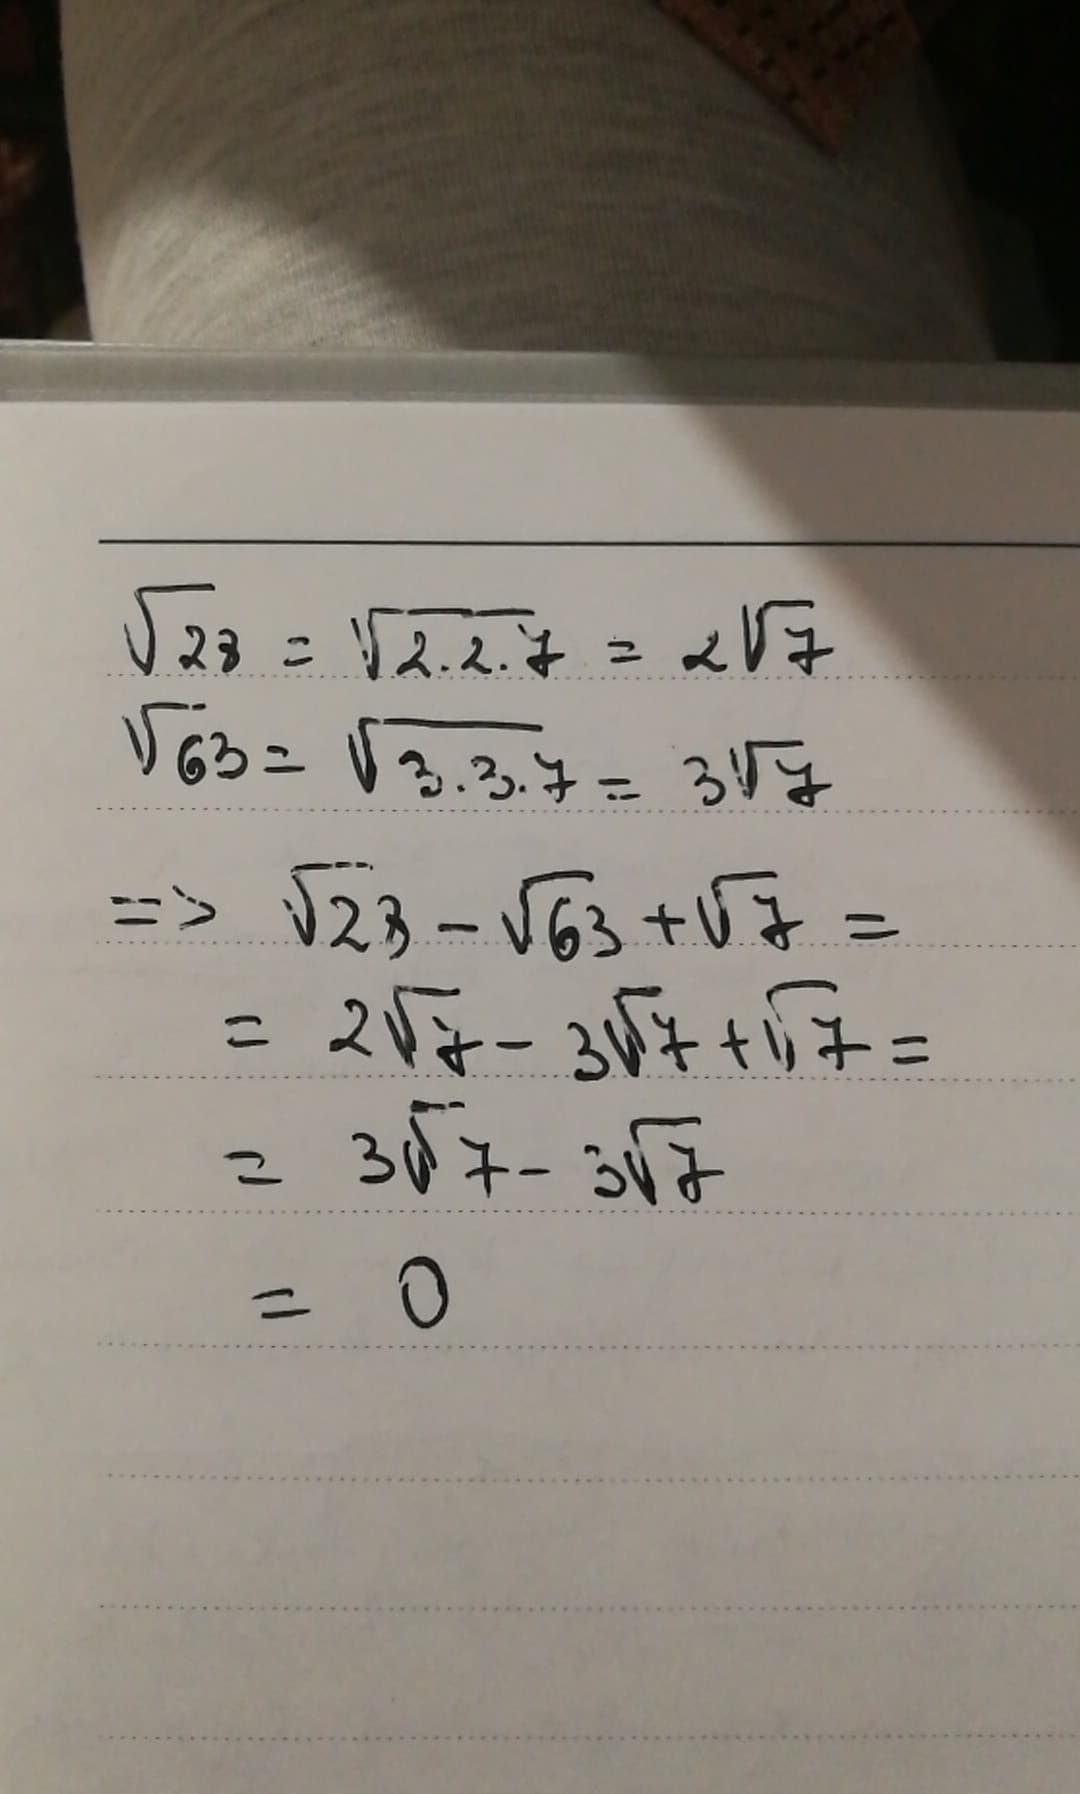 √28 = √2.2.7 = 2√7
√63 = √3.3.7 = 3√7
=> √28 - √63 + √7 =
= 2√7 - 3√7 + √7 =
= 3√7 - 3√7
= 0